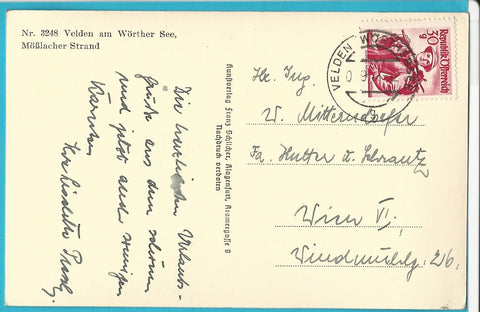 Nr. 3248 Velden am Wörther See,
Mößlacher Strand
Die herzlichsten Urlaubs-
grüße aus dem schönen
und jetzt auch sonnigen
Kärnten
Kunstverlag Franz Schilcher, Klagenfurt, Kramergasse 9
Nachdruck verboten
VELDEN WÖRTHERSEE
Republik Österreich
30 g
Hr. Ing.
W. Mitterndorfer
Fa. Hutter u. Schrantz
Wien VI.
Windmühlg. 26.